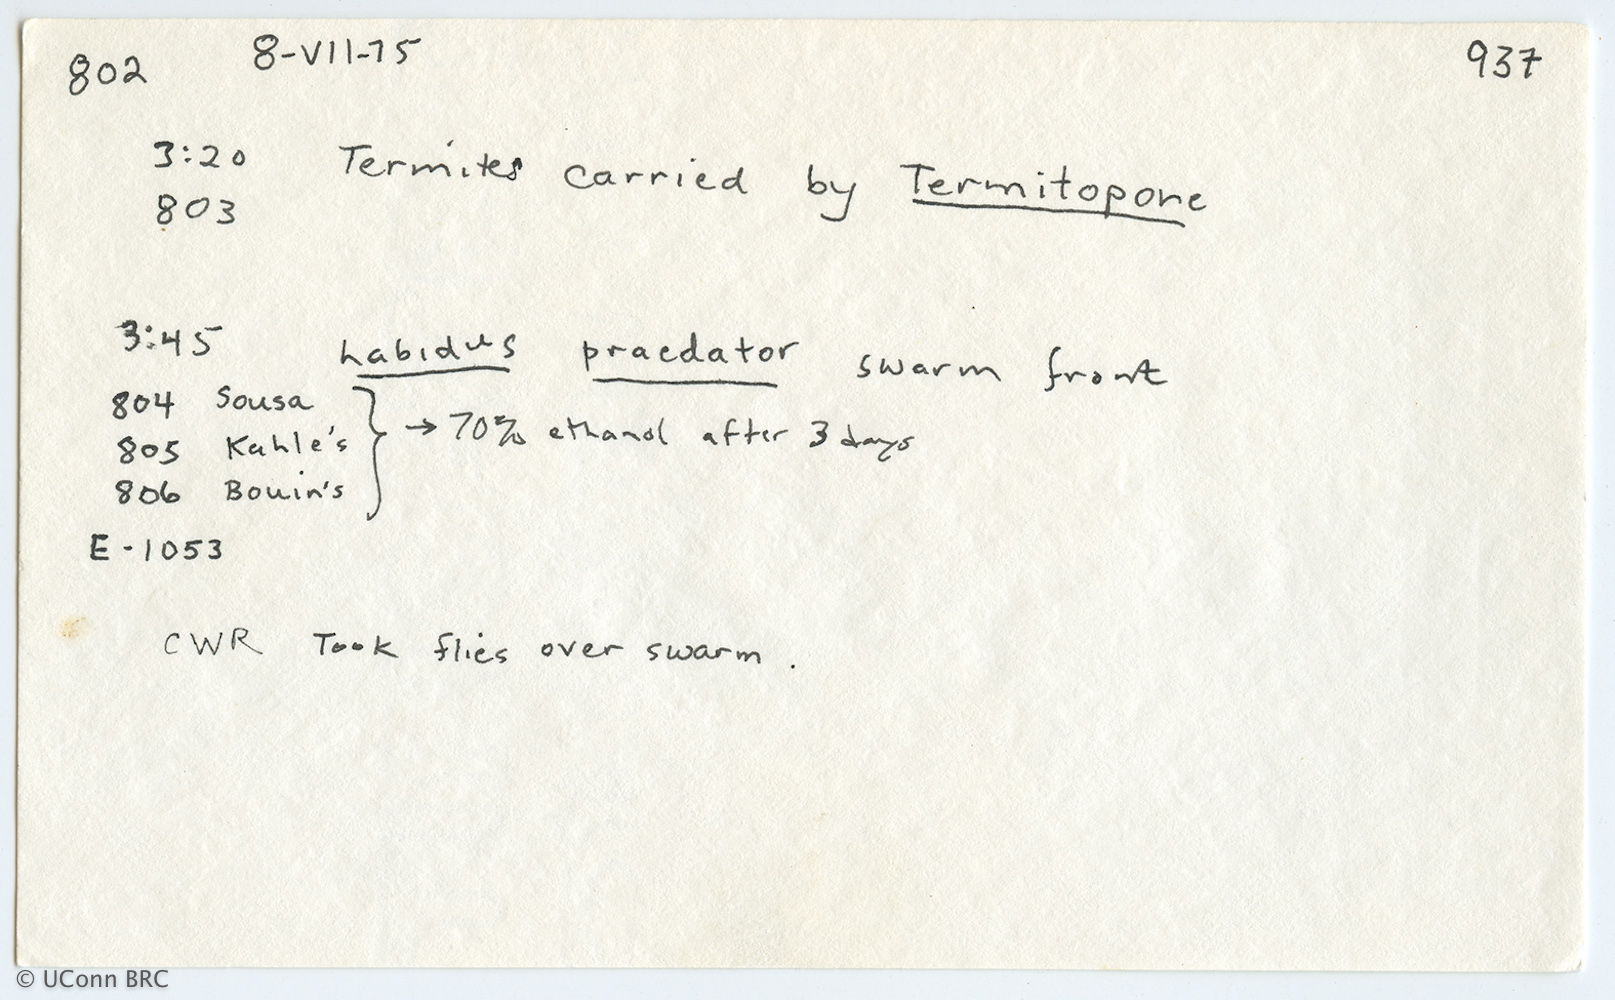 802 8-VII-75 937
3:20 Termites carried by Termitopone
803
3:45 habidus praedator swarm front
804 Sousa
805 Kahle's } → 70% ethanol after 3 days
806 Bouin's
E-1053
CWR Took flies over swarm.
© UConn BRC